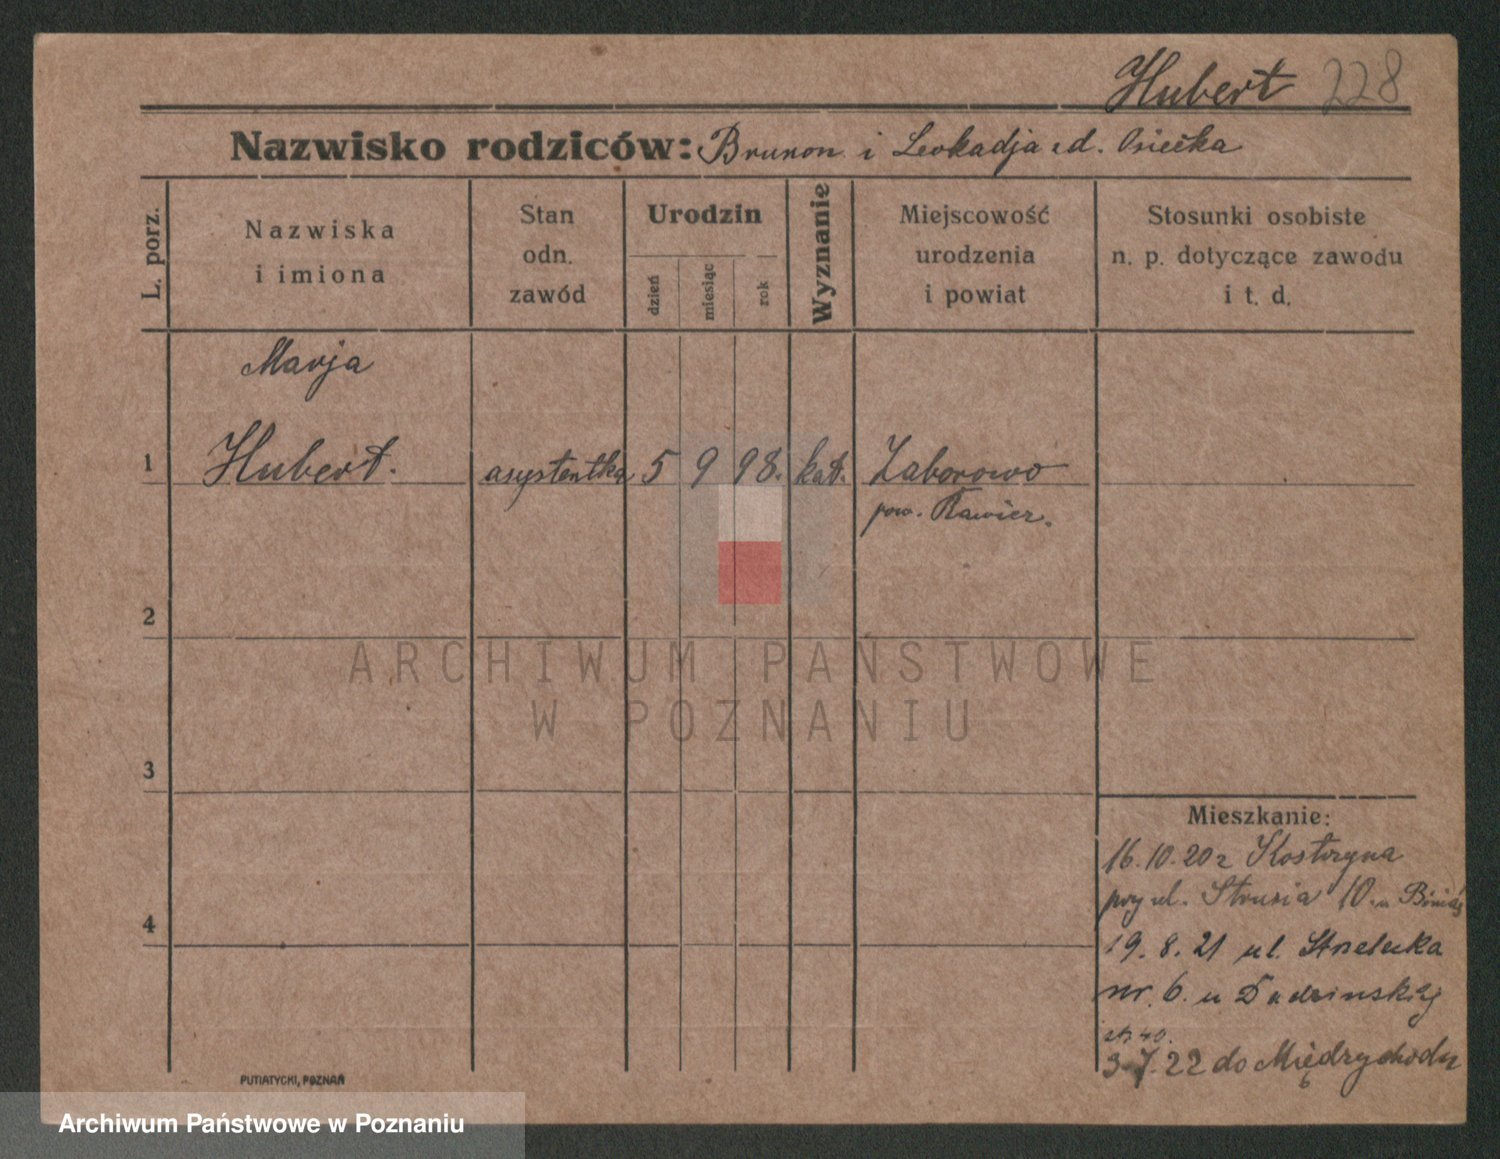 Hubert 228
Nazwisko rodziców: Brunon i Leokadja z d. Osiecka
L. porz.
Nazwiska
i imiona
Stan
odn.
zawód
Urodzin
dzień
miesiąc
rok
Wyznanie
Miejscowość
urodzenia
i powiat
Stosunki osobiste
n. p. dotyczące zawodu
i t. d.
Marja
1 Hubert. asystentka 5 9 98. kat. Zaborowo
pow. Rawicz.
2
ARCHIWUM PAŃSTWOWE
W POZNANIU
3
4
Mieszkanie:
16.10.20 z Kostrzyna
przy ul. Strusia 10.
19.8.21 ul. Strzelecka
nr. 6. u
3.7.22 do Międzychodu
PUTIATYCKI, POZNAŃ
Archiwum Państwowe w Poznaniu